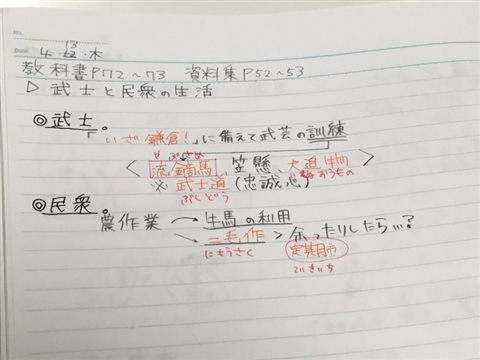 No.
Date 4・13・木
教科書P72～73 資料集P52～53
▷ 武士と民衆の生活
◎武士。
「いざ鎌倉!」に備えて武芸の訓練
やぶさめ
〈流鏑馬, 笠懸, 犬追物〉
おうもの
※武士道(忠誠心)
ぶしどう
◎民衆。
農作業 → 牛馬の利用
→ 二毛作 > 余ったりしたら…?
にもうさく 定期市
ていきいち